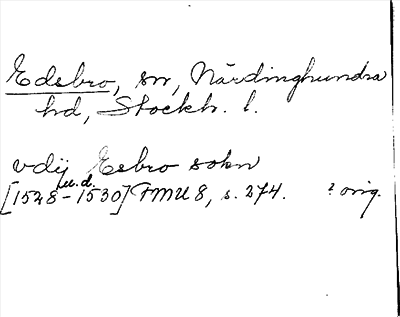 Edebro, sn, Närdinghundra
hd, Stockh. l.
vdij Esbro sokn
u.d.
[1528-1530] FMU 8, s. 274. ? orig.